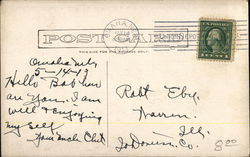 OMAHA, NEB.
POST CARD
THIS SIDE FOR THE ADDRESS ONLY.
Omaha Neb
5-14-13
Hello Bob how
are you. I am
well & enjoying
my self
your uncle Chet
Robt Eby
Warren
Ill
Jo Daviess Co.
8 00